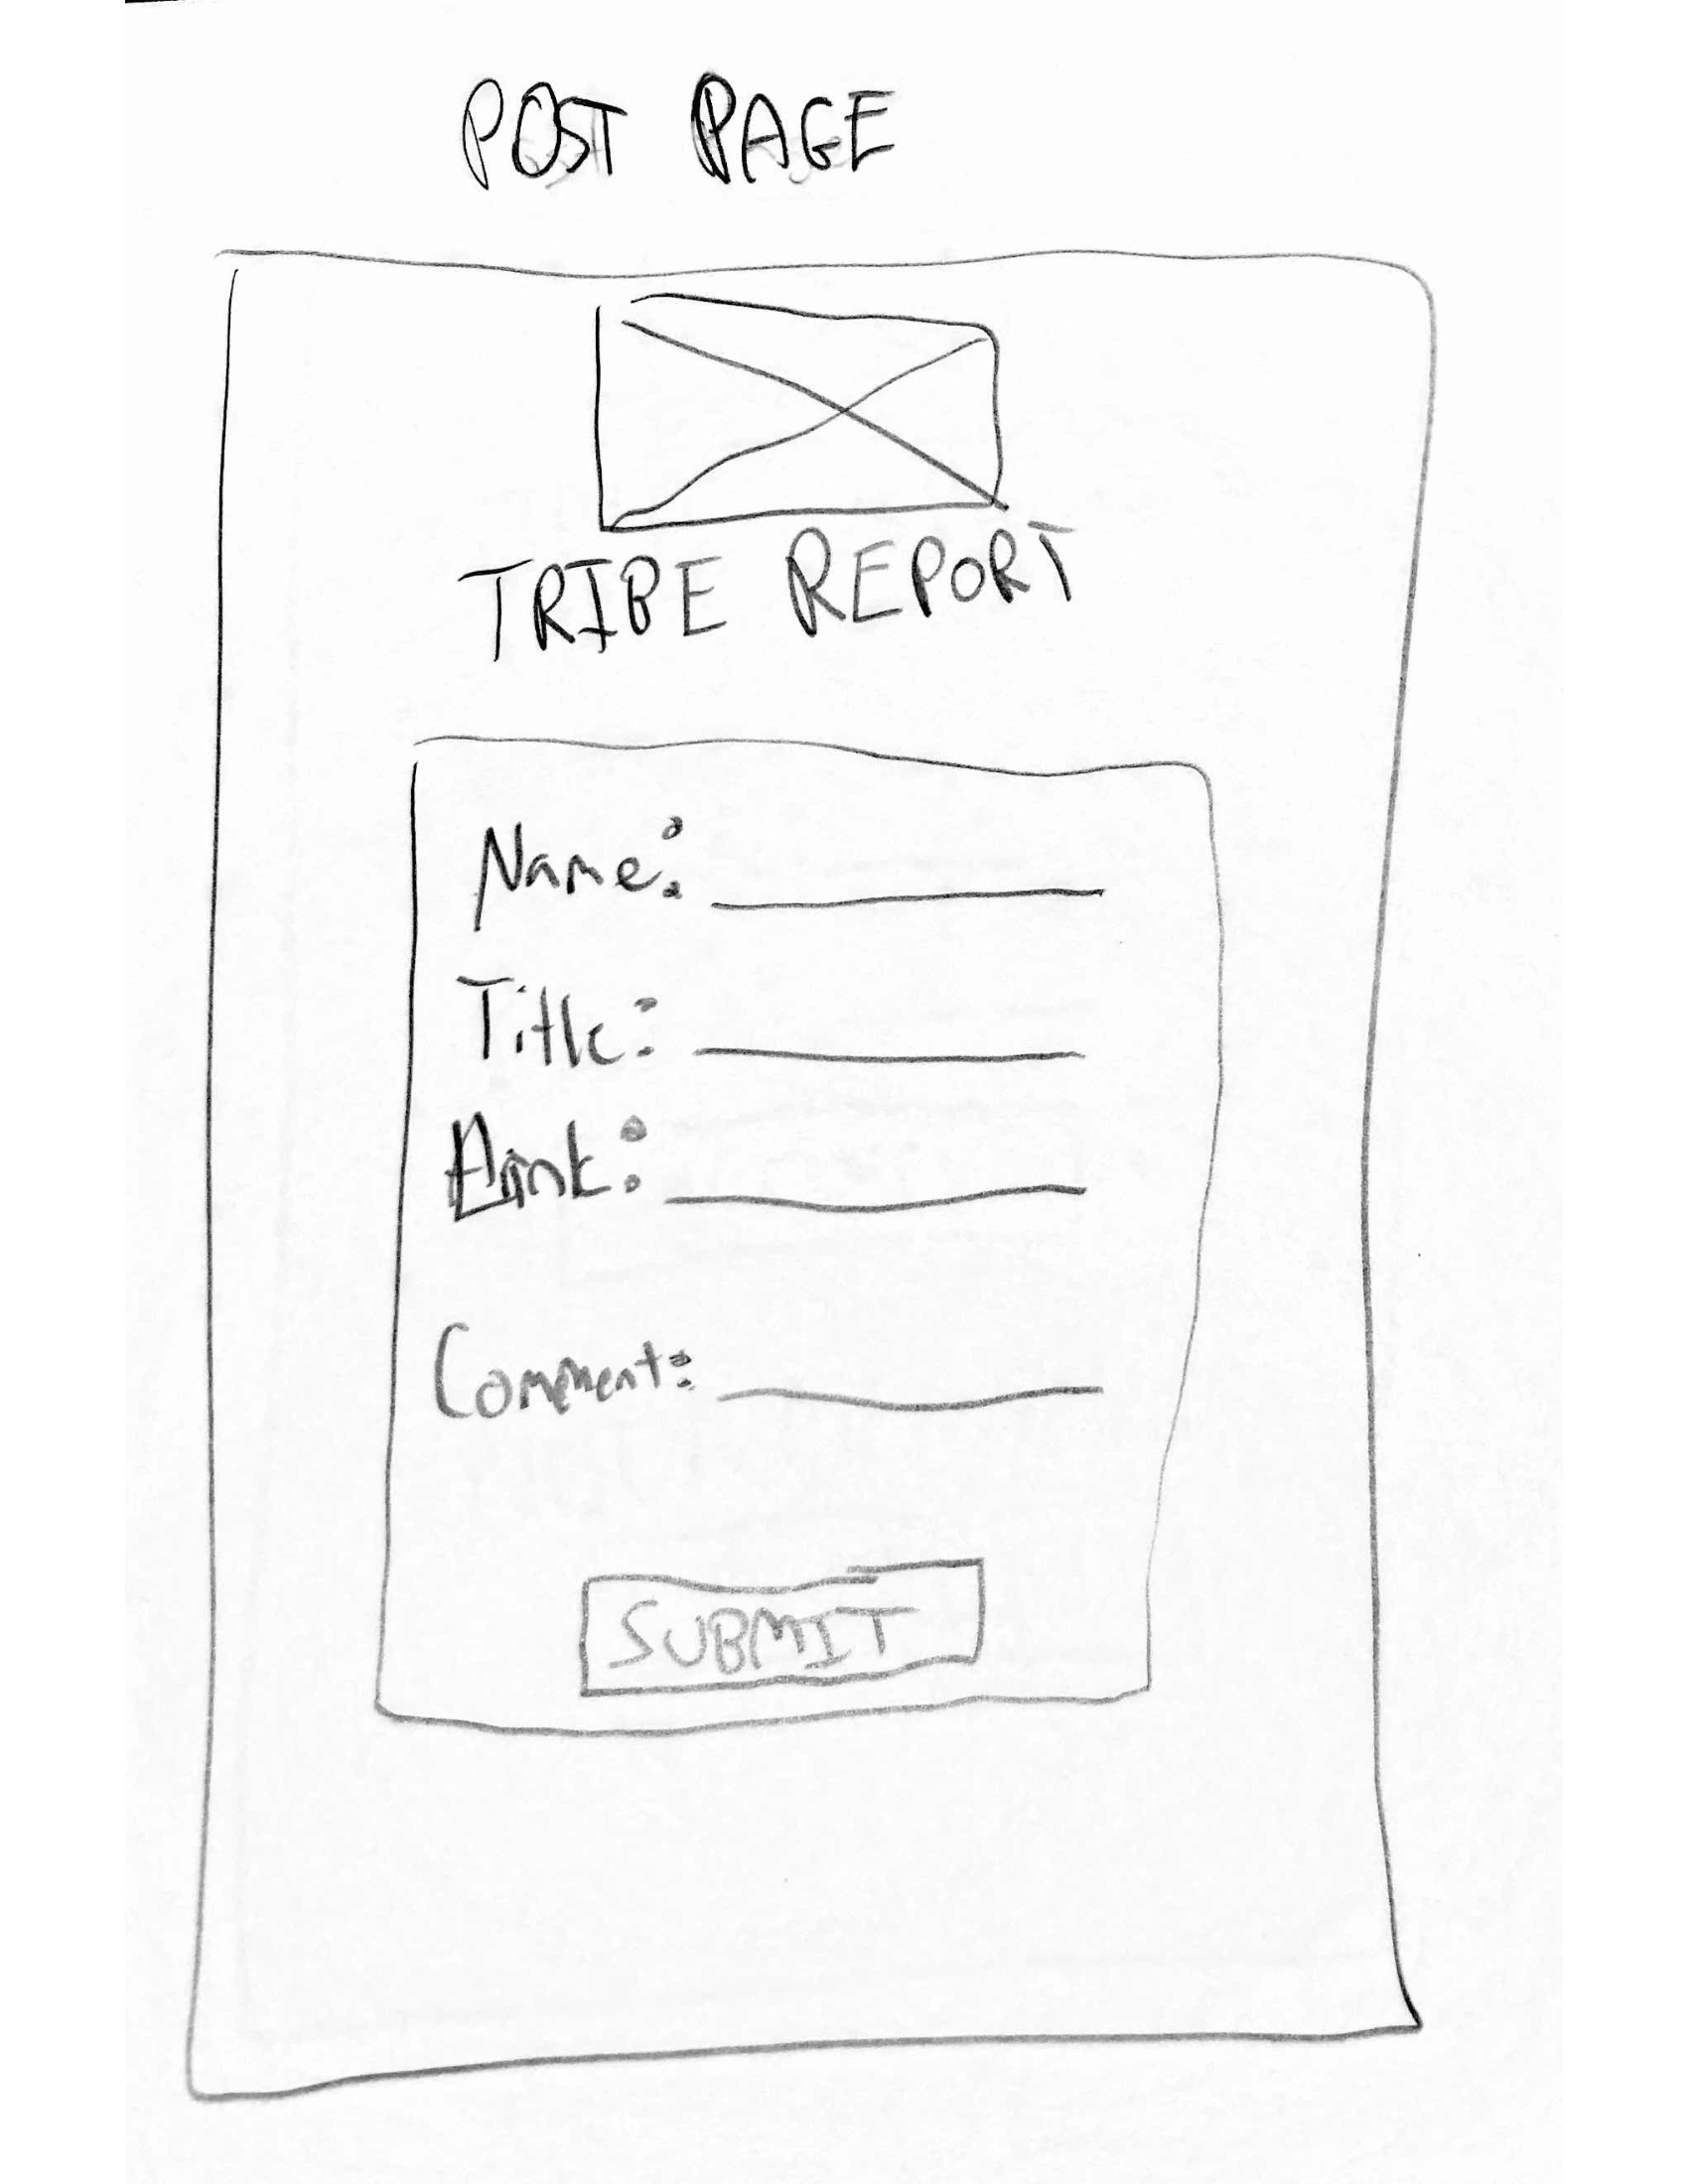 POST PAGE
TRIBE REPORT
Name:
Title:
Link:
Comment:
SUBMIT